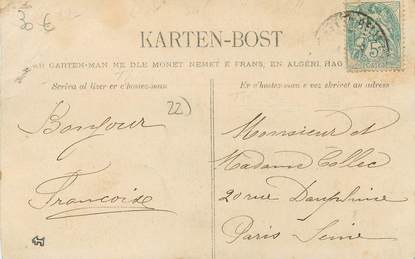 3 €
KARTEN-BOST
AR GARTEN-MAN NE DLE MONET NEMET E FRANS, EN ALGERI, HAG
Scriva al lizer er c'hostez-man
Er c'hostez-man e vez skrivet an adress
22)
Bonjour
Francoise
Monsieur et
Madame Collec
20 rue Dauphine
Paris Seine
5